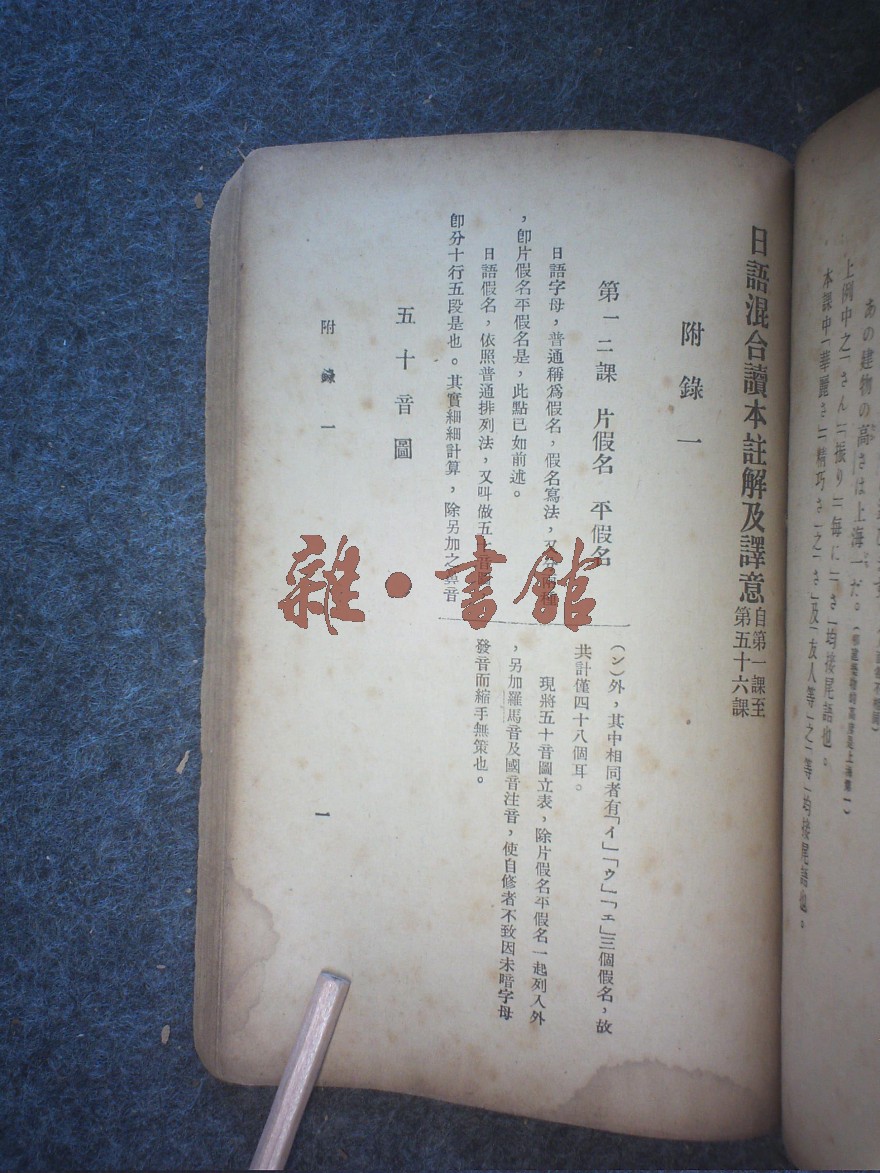 あの建物の高さは上海一だ。(那建築物的高度是上海第一)
上例中之「さん」「振り」「毎に」「さ」均接尾語也。
本課中「華麗さ」「精巧さ」之「さ」及「友人等」之「等」均接尾語也。
日語混合讀本註解及譯意 自第一課至第五十六課
附錄一
第一二課 片假名 平假名
日語字母，普通稱爲假名，假名寫法，又分兩種
，卽片假名平假名是，此點已如前述。
日語假名，依照普通排列法，又叫做五十音圖
卽分十行五段是也。其實細細計算，除另加之鼻音
(ン)外，其中相同者有「イ」「ウ」「エ」三個假名，故
共計僅四十八個耳。
現將五十音圖立表，除片假名平假名一起列入外
，另加羅馬音及國音注音，使自修者不致因未暗字母
發音而縮手無策也。
五十音圖
附錄一
一
雜·書館